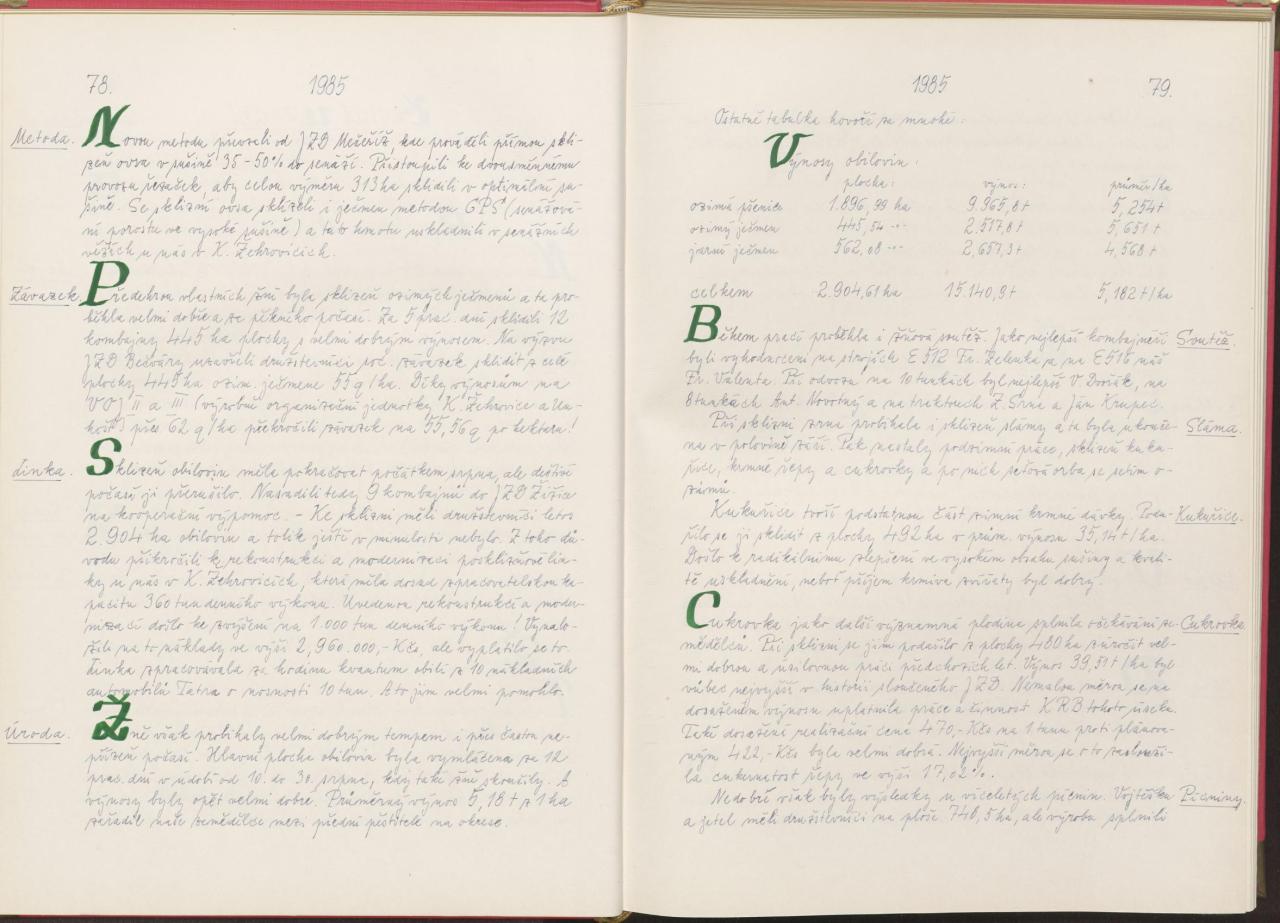 78.
1985
Metoda.
Novou metodu převzali od JZD Mečeříž, kde prováděli přímou skli-
zeň ovsa v sušině 35-50% do senáží. Přistoupili ke dvousměnnému
provozu řezaček, aby celou výměru 313 ha sklidili v optimální su-
šině. Se sklizní ovsa sklízeli i ječmen metodou GPS (senážová-
ní porostu ve vysoké sušině) a tuto hmotu uskladnili v senážních
věžích u nás v K. Žehrovicích.
Závazek.
Předehrou vlastních žní byla sklizeň ozimých ječmenů a ta pro-
běhla velmi dobře a za pěkného počasí. Za 5 prac. dní sklidili 12
kombajny 445 ha plochy s velmi dobrým výnosem. Na výzvu
JZD Bečváry uzavřeli družstevníci soc. závazek sklidit z celé
plochy 445 ha ozim. ječmene 55 q/ha. Díky výnosům na
VOJ II a III (výrobně organizační jednotky K. Žehrovice a Un-
hošť) přes 62 q/ha překročili závazek na 55,56 q po hektaru!
Linka.
Sklizeň obilovin měla pokračovat počátkem srpna, ale deštivé
počasí ji přerušilo. Nasadili tedy 9 kombajnů do JZD Žižice
na kooperační výpomoc. - Ke sklizni měli družstevníci letos
2.904 ha obilovin a tolik ještě v minulosti nebylo. Z toho dů-
vodu přikročili k rekonstrukci a modernizaci posklizňové lin-
ky u nás v K. Žehrovicích, která měla dosud zpracovatelskou ka-
pacitu 360 tun denního výkonu. Uvedenou rekonstrukcí a moder-
nizací došlo ke zvýšení na 1.000 tun denního výkonu! Vynalo-
žili na to náklady ve výši 2,960.000,- Kčs, ale vyplatilo se to.
Linka zpracovávala za hodinu kvantum obilí z 10 nákladních
automobilů Tatra o nosnosti 10 tun. A to jim velmi pomohlo.
Úroda.
Žně však probíhaly velmi dobrým tempem i přes častou ne-
přízeň počasí. Hlavní plocha obilovin byla vymlácena za 12
prac. dní v údobí od 10. do 30. srpna, kdy také žně skončily. A
výnosy byly opět velmi dobré. Průměrný výnos 5,18 t z 1 ha
zařadil naše zemědělce mezi přední pěstitele na okrese.
1985
79.
Ostatně tabulka hovoří za mnohé:
Výnosy obilovin:
plocha: výnos: průměr/ha
ozimá pšenice 1.896,99 ha 9.965,8 t 5,254 t
ozimý ječmen 445,54 -"- 2.517,8 t 5,651 t
jarní ječmen 562,08 -"- 2,657,3 t 4,568 t
celkem 2.904,61 ha 15.140,9 t 5,182 t/ha
Během prací proběhla i žňová soutěž. Jako nejlepší kombajnéři
Soutěž.
byli vyhodnoceni na strojích E 512 Fr. Zelenka a na E 516 náš
Fr. Valenta. Při odvozu na 10 tunkách byl nejlepší V. Dvořák, na
8 tunkách Ant. Novotný a na traktorech Z. Srna a Ján Krupec.
Při sklizni zrna probíhala i sklizeň slámy a ta byla ukonče-
Sláma.
na v polovině září. Pak nastaly podzimní práce, sklizeň kuku-
řice, krmné řepy a cukrovky a po nich seťová orba se setím o-
zimů.
Kukuřice tvoří podstatnou část zimní krmné dávky. Poda-
Kukuřice.
řilo se ji sklidit z plochy 492 ha o prům. výnosu 35,14 t/ha.
Došlo k radikálnímu zlepšení ve vysokém obsahu sušiny a kvali-
tě uskladnění, neboť příjem krmiva zvířaty byl dobrý.
Cukrovka jako další významná plodina splnila očekávání ze-
Cukrovka
mědělců. Při sklizni se jim podařilo z plochy 480 ha zúročit vel-
mi dobrou a usilovnou práci předchozích let. Výnos 39,51 t/ha byl
vůbec nejvyšší v historii sloučeného JZD. Nemalou měrou se na
dosaženém výnosu uplatnila práce a činnost KRB tohoto úseku.
Také dosažená realizační cena 470,- Kčs na 1 tunu proti pláno-
ným 422,- Kčs byla velmi dobrá. Nejvyšší měrou se o to zaslouži-
la cukernatost řepy ve výši 17,02%.
Nedobré však byly výsledky u víceletých pícnin. Vojtěšku
Pícniny.
a jetel měli družstevníci na ploše 740,5 ha, ale výroba splnili